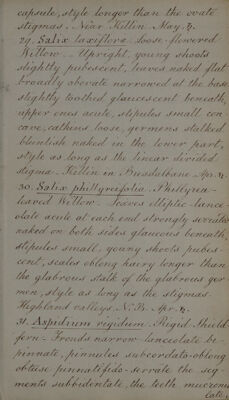 capsule, style longer than the ovate
stigmas. Near Killin. May. ♄.
29. Salix laxiflora. loose-flowered
Willow. Upright, young shoots
slightly pubescent, leaves naked flat
broadly obovate narrowed at the base
slightly toothed glaucescent beneath,
upper ones acute, stipules small con
cave, catkins loose, germens stalked
blueish naked in the lower part,
style as long as the linear divided
stigma. Killin in Breadalbane. Apr. ♄.
30. Salix phillyreifolia. Phillyrea-
leaved Willow. Leaves elliptic-lance
olate acute at each end strongly serrated
naked on both sides glaucous beneath,
stipules small, young shoots pubes-
cent, scales oblong hairy longer than
the glabrous stalk of the glabrous ger
men, style as long as the stigmas.
Highland valleys. N.B. Apr. ♄.
31. Aspidium rigidum. Rigid Shield
fern. Fronds narrow lanceolate bi-
pinnate, pinnules subcordato-oblong
obtuse pinnatifido-serrate the seg-
ments subbidentate, the teeth mucrono